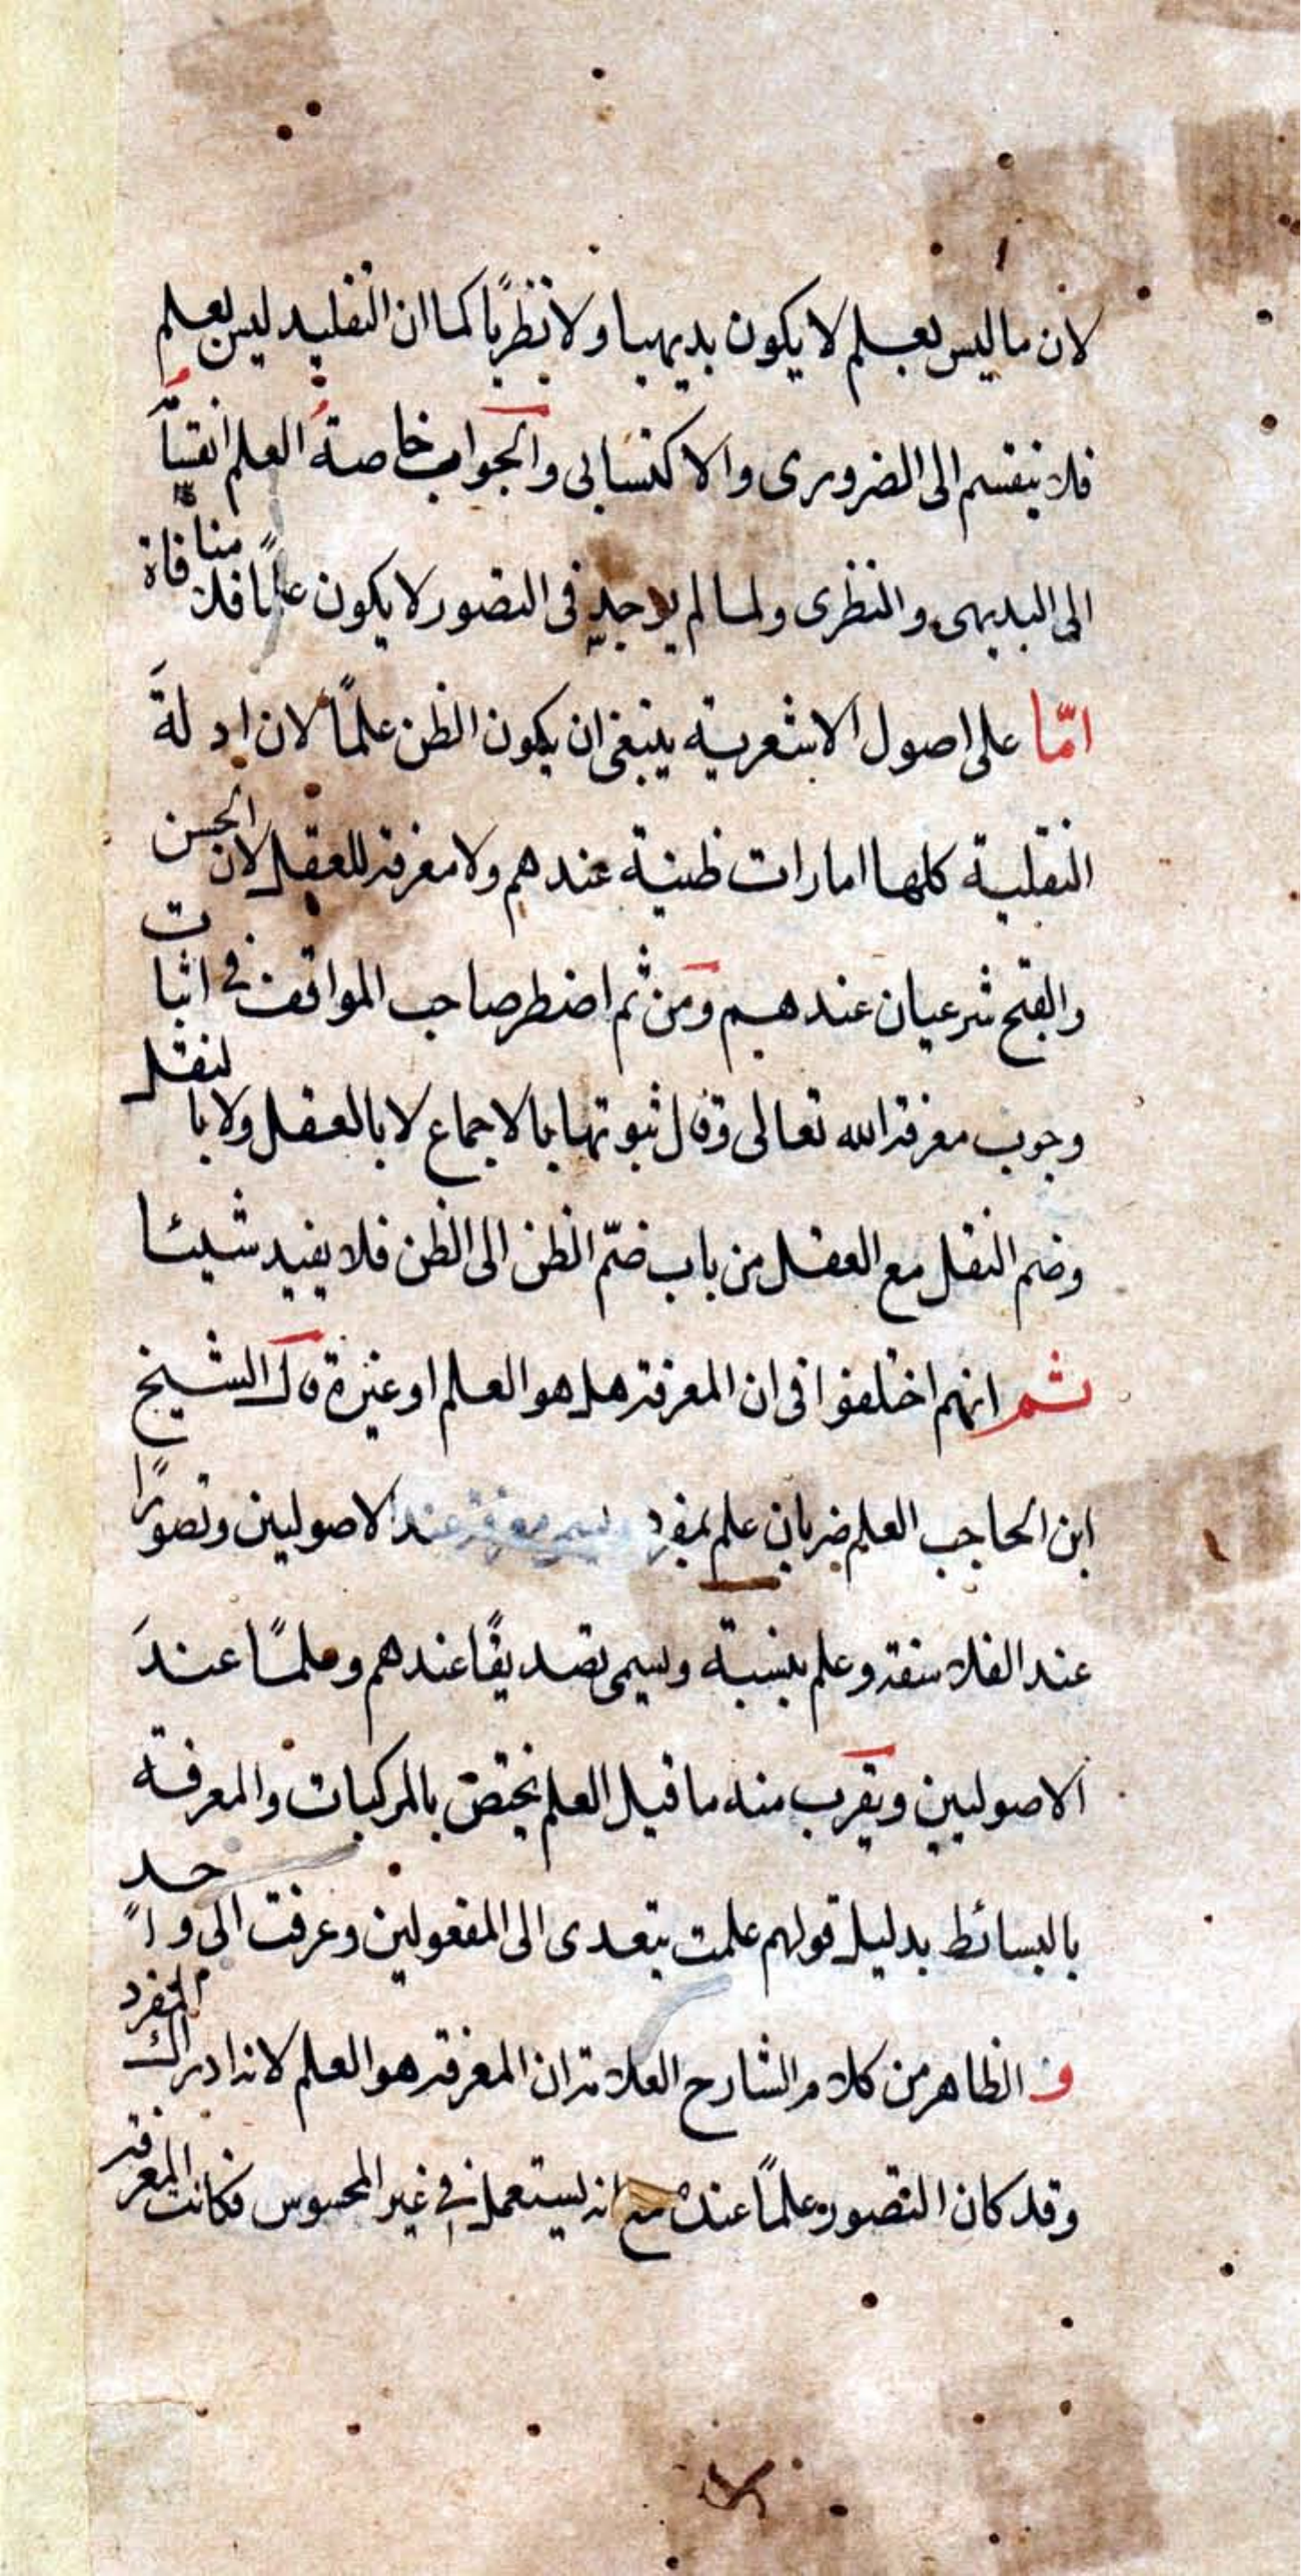 لان ما ليس بعلم لا يكون بديهيا ولا نظريًا كما ان التقليد ليس بعلم
فلا ينقسم الى الضرورى والاكتسابى والجواب خاصةُ العلم انقسا
الى البديهى والنظرى ولما لم يوجد فى التصور لا يكون علمًا فلا منافاة
امّا على اصول الاشعرية ينبغى ان يكون الظن علمًا لان ادلةَ
النقلية كلها امارات ظنية عندهم ولا معرفة للعقل لان الحسن
والقبح شرعيان عندهم ومن ثم اضطر صاحب المواقف فى اثبات
وجوب معرفة الله تعالى وقال ثبوتها بالاجماع لا بالعقل ولا بالنقل
وضم النقل مع العقل من باب ضمّ الظن الى الظن فلا يفيد شيئا
ثم انهم اختلفوا فى ان المعرفة هل هو العلم او غيره قال الشيخ
ابن الحاجب العلم ضربان علم بمفرد ويسمى معرفة عند الاصوليين وتصورًا
عند الفلاسفة وعلم بنسبة ويسمى تصديقًا عندهم وعلمًا عندَ
الاصوليين ويقرب منه ما قيل العلم يختصّ بالمركبات والمعرفة
بالبسائط بدليل قولهم علمت يتعدى الى المفعولين وعرفت الى واحد
ف الظاهر من كلام الشارح العلامة ان المعرفة هو العلم لانه ادراك المفرد
وقد كان التصور علمًا عنده مع انه يستعمل فى غير المحسوس فكانت المعرفة